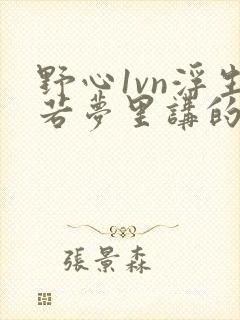 野心1vn浮生
若夢里講的
張景森